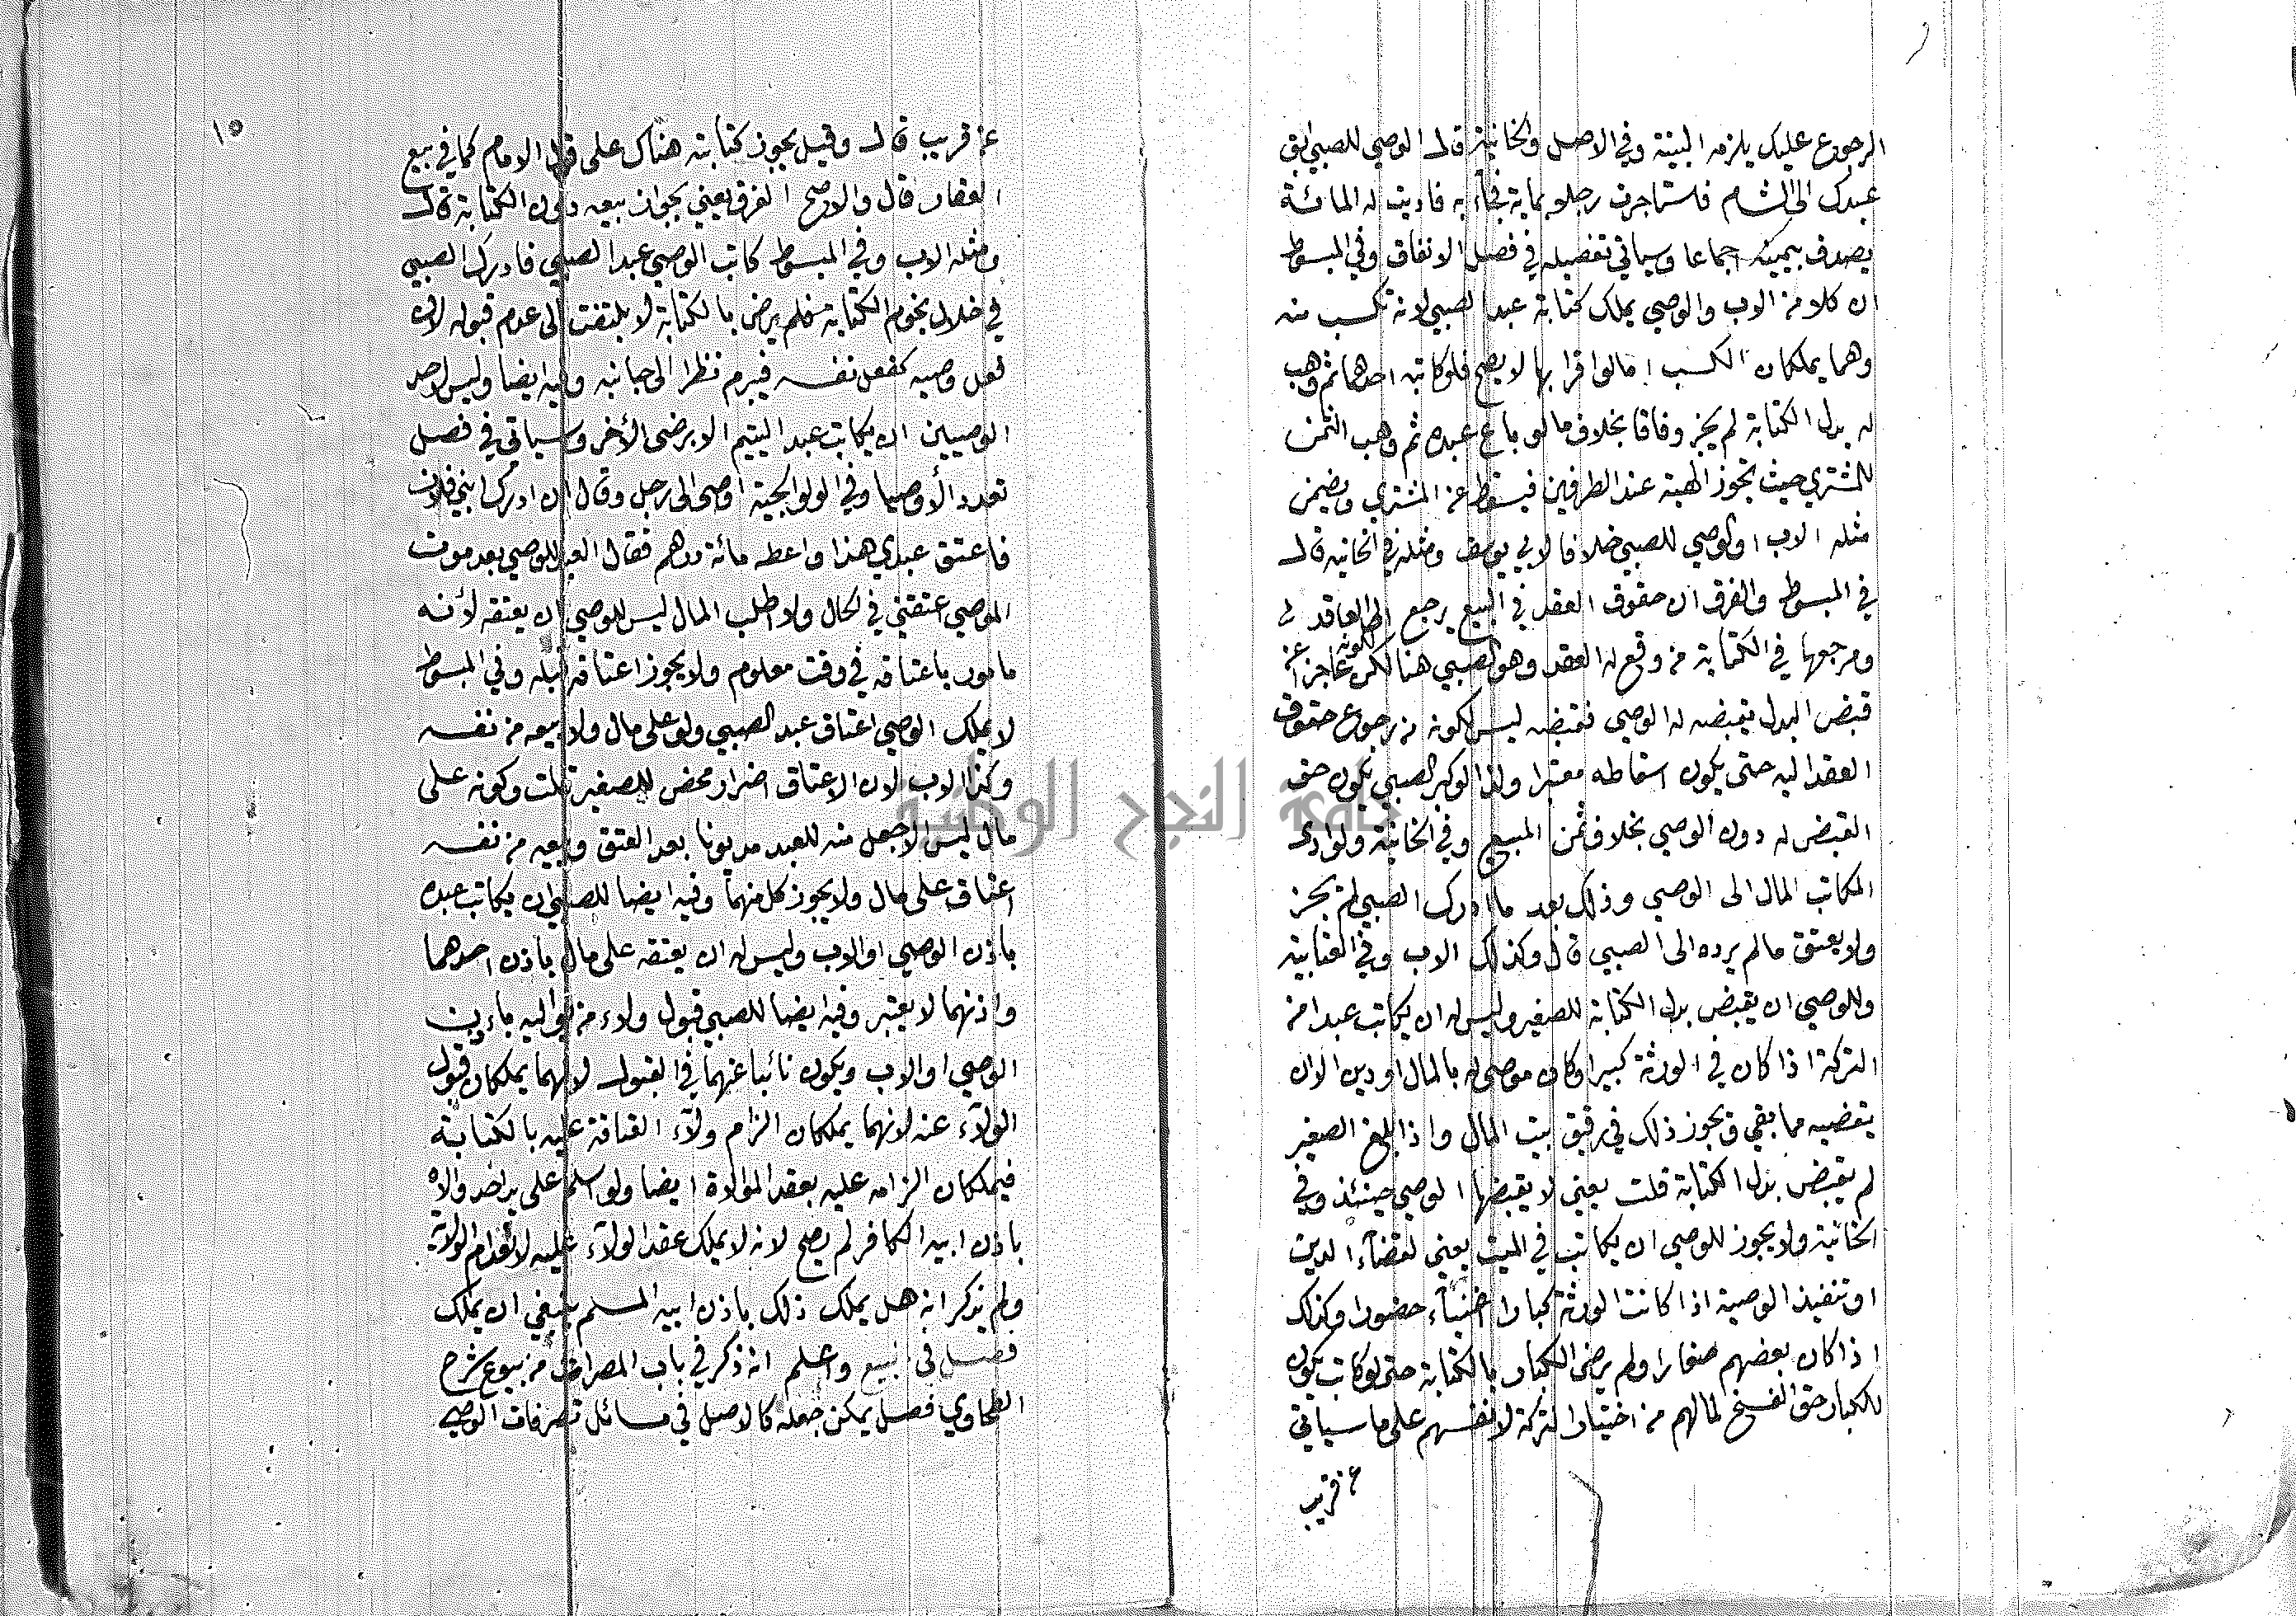 الرجوع عليك يلزمه البينة وفي الاصل والخانية قال الوصي للصبي ابق
عبدك الى الشام فاستاجرت رجلا بماية فجآء به فاديت له المائة
يصدق بيمينه اجماعا وسياتي تفصيله في فصل الانفاق وفي المبسوط
ان كلا من الاب والوصي يملك كتابة عبد الصبي لانه تكسب منه
وهما يملكان الكسب اما لو اقرا بها لا يصح فلو كاتبه احدهما ثم وهب
له بدل الكتابة لم يجز وفاقا بخلاف ما لو باع عبده ثم وهب الثمن
للمشتري حيث تجوز الهبة عند الطرفين فيسقط عن المشتري ويضمن
مثله الاب او الوصي للصبي خلافا لابي يوسف ومثله في الخانية قال
في المبسوط والفرق ان حقوق العقد في البيع يرجع الى العاقد
ومرجعها في الكتابة من وقع له العقد وهو الصبي هنا لكن لكونه عاجزا عن
قبض البدل يقبضه له الوصي فقبضه ليس لكونه من رجوع حقوق
العقد اليه حتى يكون اسقاطه معتبرا ولذا لو كبر الصبي يكون حق
القبض له دون الوصي بخلاف ثمن المبيع وفي الخانية ولو ادى
المكاتب المال الى الوصي وذلك بعد ما ادرك الصبي لم يجز
ولا يعتق ما لم يرده الى الصبي قال وكذلك الاب وفي العتابية
وللوصي ان يقبض بدل الكتابة للصغير وليس له ان يكاتب عبدا من
التركة اذا كان في الورثة كبير او كان موصى له بالمال او دين الا ان
يقضيه مما بقي ويجوز ذلك في رقيق بيت المال واذا بلغ الصغير
لم يقبض بدل الكتابة قلت يعني لا يقبضها الوصي حينئذ وفي
الخانية ولا يجوز للوصي ان يكاتب في الميت يعني لقضآء الدين
او تنفيذ الوصية اذا كانت الورثة كبارا اغنيآء حضورا وكذلك
اذا كان بعضهم صغارا ولم يرض الكبار بالكتابة حتى لو كاتب يكون
للكبار حق الفسخ لمالهم من اختيار التركة لانفسهم على ما سياتي
عن قريب
١٥
عن قريب قال وقيل يجوز كتابته هناك على قول الامام كما في بيع
العقار قال والاصح الفرق يعني بجواز بيعه دون الكتابة قال
ومثله الاب وفي المبسوط كاتب الوصي عبد الصبي فادرك الصبي
في خلال نجوم الكتابة فلم يرض بالكتابة لا يلتفت الى عدم قبوله لان
فعل وصيه كفعل نفسه فيبرم نظرا الى جانبه وفيه ايضا وليس لاحد
الوصيين ان يكاتب عبد اليتيم الا برضى الأخر وسياتي في فصل
تعدد الأوصيا وفي الولوالجية اوصى الى رجل وقال ان ادرك ابني فلان
فاعتق عبدي هذا واعطه مائة درهم فقال العبد للوصي بعد موت
الموصي اعتقني في الحال ولا اطلب المال ليس للوصي ان يعتقه لأنه
مامور باعتاقه في وقت معلوم ولا يجوز اعتاقه قبله وفي المبسوط
لا يملك الوصي اعتاق عبد الصبي ولو على مال ولا بيعه من نفسه
وكذا الاب لان الاعتاق اضرار محض للصغير قلت وكونه على
مال ليس الا جعل منه للعبد مديونا بعد العتق وبيعه من نفسه
اعتاق على مال ولا يجوز كل منهما وفيه ايضا للصبي ان يكاتب عبده
باذن الوصي او الاب وليس له ان يعتقه على مال باذن احدهما
واذنهما لا يعتبر وفيه ايضا للصبي قبول ولاء من يواليه باذن
الوصي او الاب ويكون نائبا عنهما في القبول لانهما يملكان قبول
الولآء عنه لانهما يملكان الزام ولآء العتاقة عليه بالكتابة
فيملكان الزامه عليه بعقد الموالاة ايضا ولو اسلم على يد احد والاه
باذن ابيه الكافر لم يصح لانه لا يملك عقد الولآء عليه لانعدام الولاية
ولم يذكر انه هل يملك ذلك باذن ابيه المسلم ينبغي ان يملك
فصل في البيع واعلم انه ذكر في باب المصراة من بيوع شرح
الطحاوي فصل يمكن جعله كالاصل في مسائل تصرفات الوصي
جامعة النجاح الوطنية